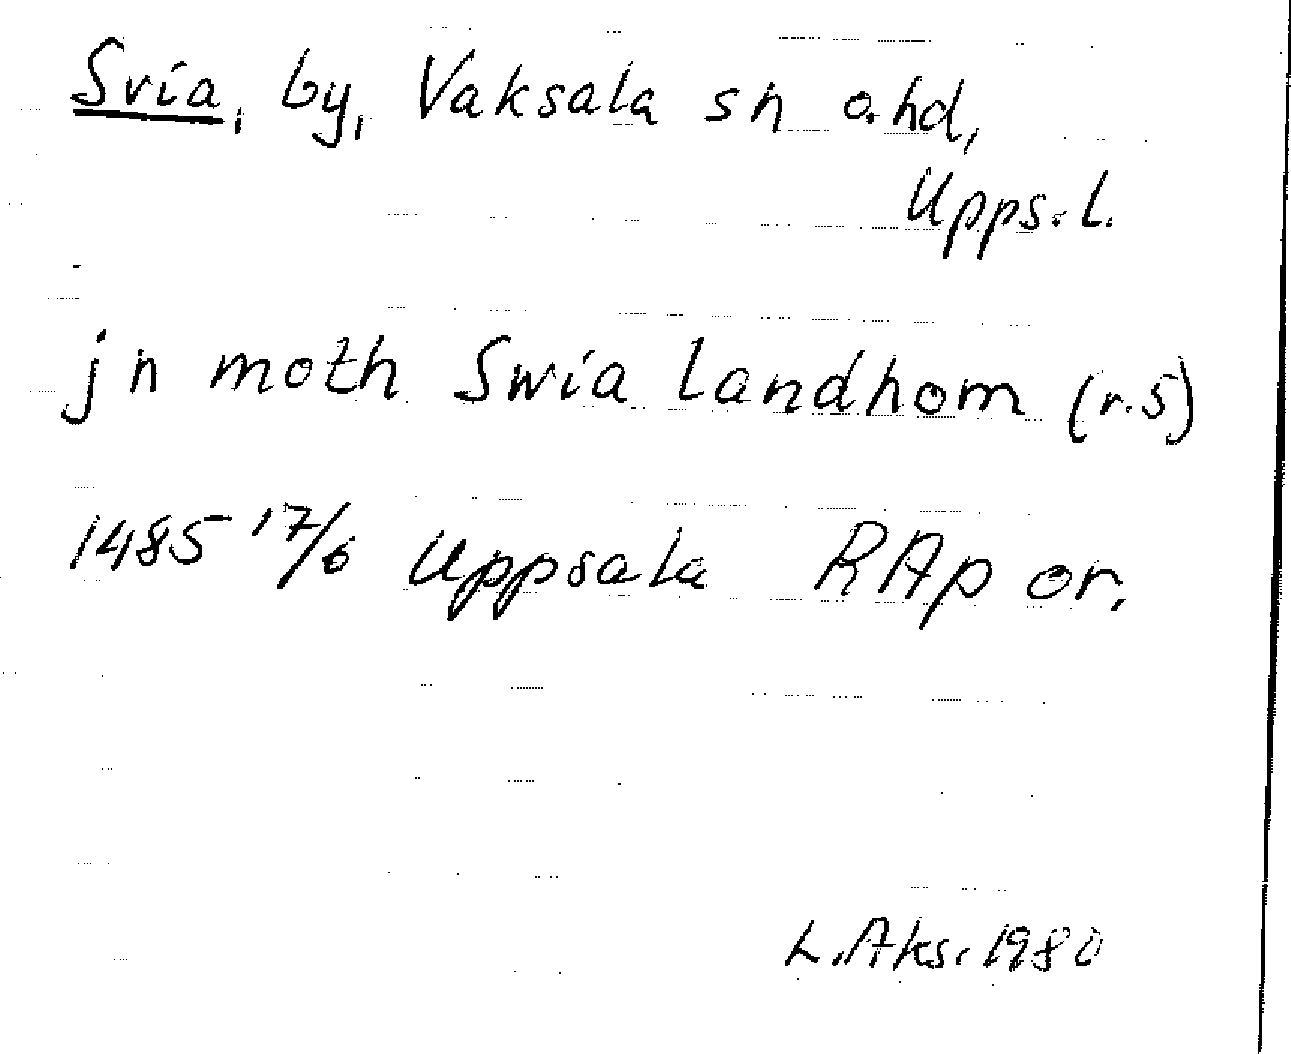 Svia, by, Vaksala sn o. hd,
Upps. l.
jn moth Swia landhom (r. 5)
1485 17/6 Uppsala RAp or.
L. Aks. 1980